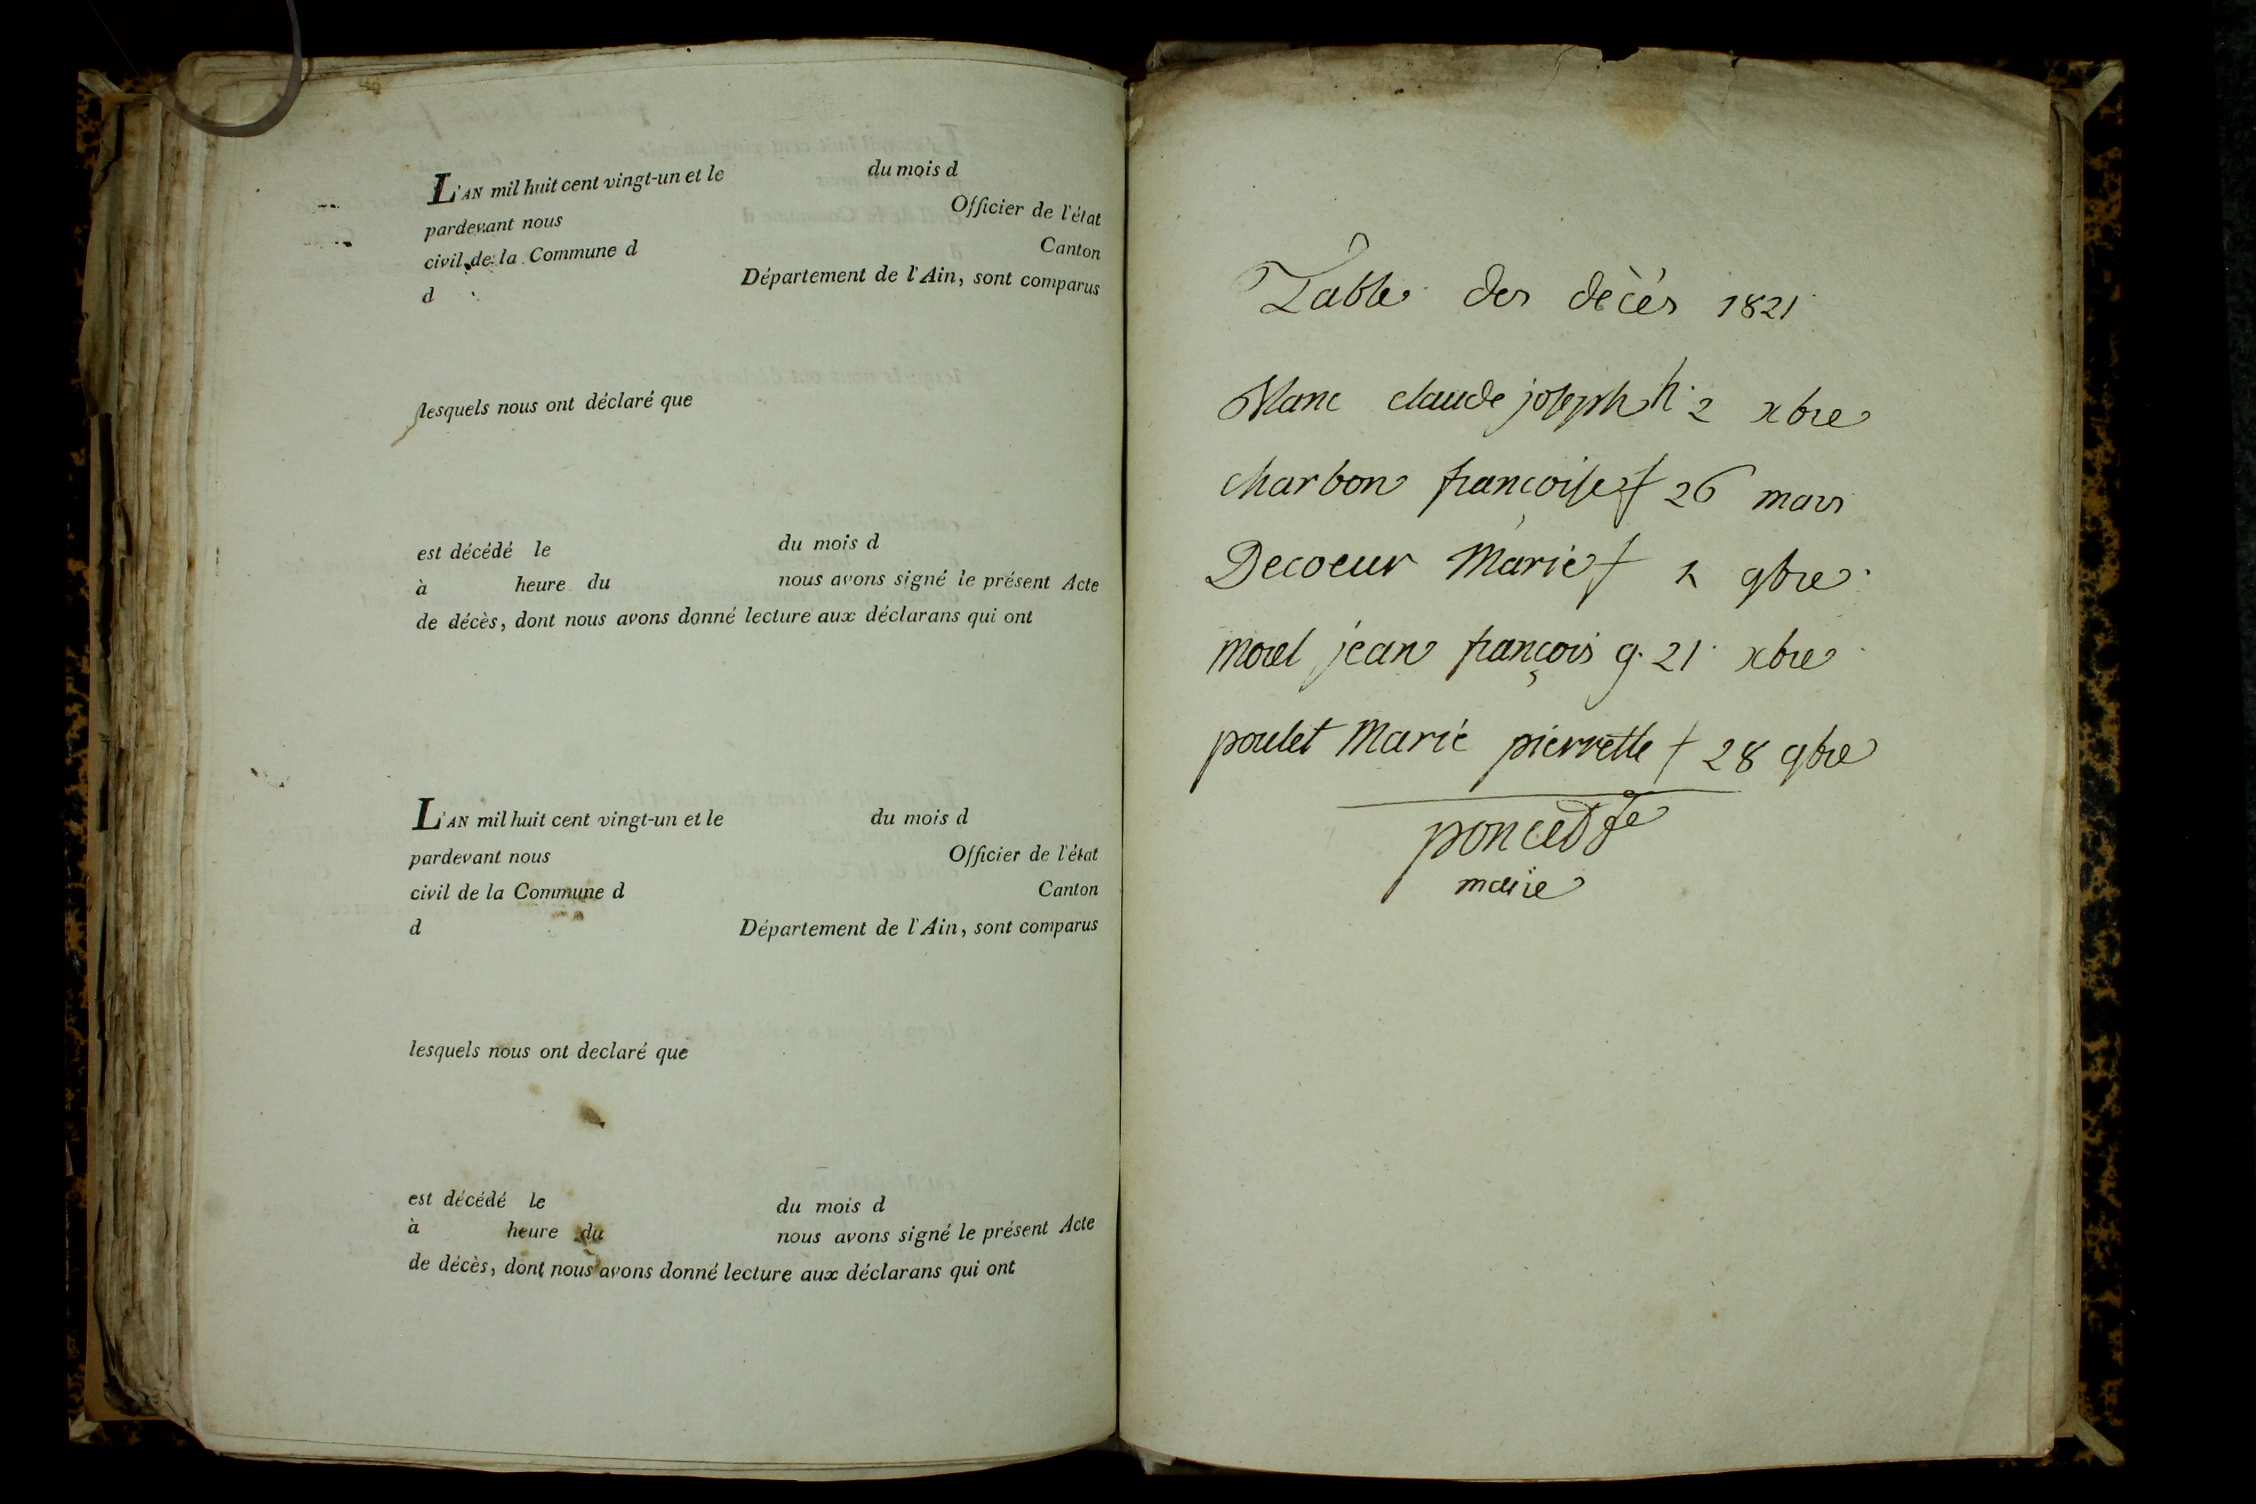 L'AN mil huit cent vingt-un et le du mois d
pardevant nous Officier de l'état
civil de la Commune d Canton
d Département de l'Ain, sont comparus
lesquels nous ont déclaré que
est décédé le du mois d
à heure du nous avons signé le présent Acte
de décès, dont nous avons donné lecture aux déclarans qui ont
L'AN mil huit cent vingt-un et le du mois d
pardevant nous Officier de l'état
civil de la Commune d Canton
d Département de l'Ain, sont comparus
lesquels nous ont declaré que
est décédé le du mois d
à heure du nous avons signé le présent Acte
de décès, dont nous avons donné lecture aux déclarans qui ont
Table des décès 1821
claude joseph h. 2 xbre
charbon françoise f 26 mars
Decoeur Marie f 9bre
morel jean françois g. 21 xbre
poulet Marie pierrette f 28 9bre
poncet
maire